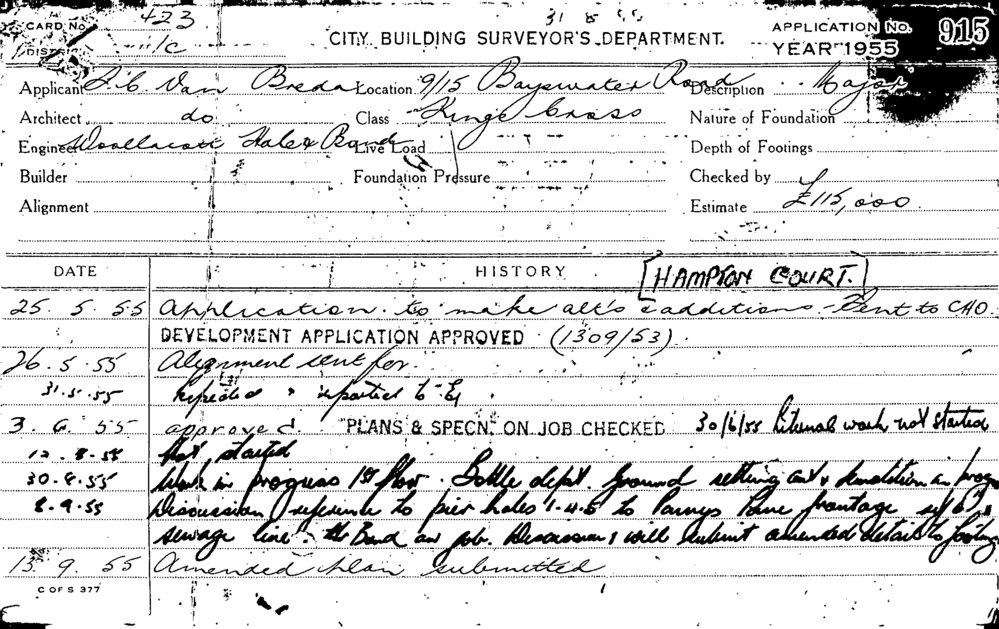 31 8 55
CARD No. 423
DISTRICT 1/c
CITY BUILDING SURVEYOR'S DEPARTMENT.
APPLICATION NO. 915
YEAR 1955
Applicant J.C. Van Breda Location 9/15 Bayswater Road Description Major
Architect do Class Kings Cross Nature of Foundation
Engineer Woollacott Hale & Bond Live Load Depth of Footings
Builder Foundation Pressure Checked by
Alignment Estimate £115,000
DATE HISTORY [HAMPTON COURT.]
25. 5. 55 Application to make alt's & additions. Sent to CHO.
DEVELOPMENT APPLICATION APPROVED (1309/53).
26.5.55 Alignment sent for.
31.5.55 Inspected & reported to
3. 6. 55 approved. PLANS & SPECN. ON JOB CHECKED 30/6/55 Internal work not started
12.8.55 Not started
30.8.55 Work in progress 1st floor. Bottle dept. Ground setting out & demolition in prog
8.9.55 Discussion reference to pier holes 1-4-5 to frontage
sewage line. Mr Bond on job. Discussion & will submit amended details to footing
13. 9. 55 Amended plan submitted
C OF S 377